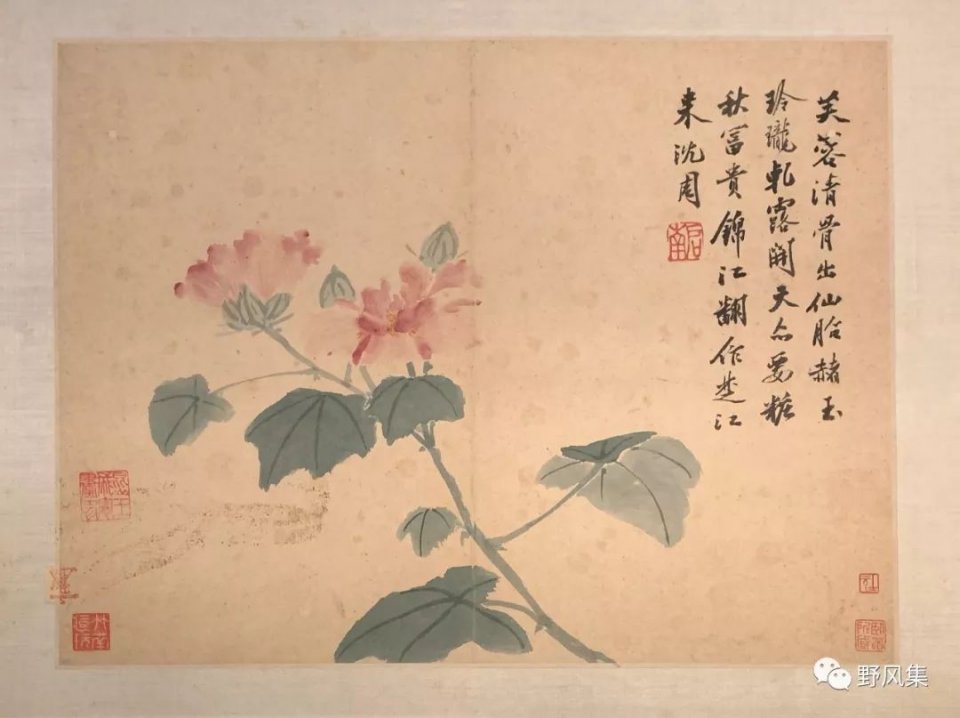 芙蓉清骨出仙胎赭玉
玲瓏軋露開天亦要粧
秋富貴錦江翻作楚江
来沈周
启南
野风集